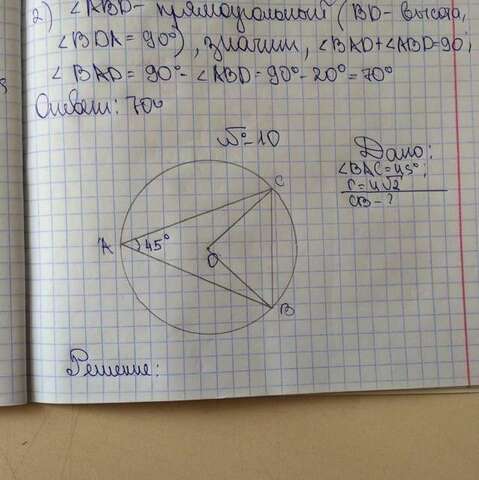 2) ∠ABD - прямоугольный (BD - высота,
∠BDA = 90°), значит, ∠BAD + ∠ABD = 90;
∠BAD = 90° - ∠ABD = 90° - 20° = 70°
Ответ: 70°
№ 10
Дано:
∠BAC = 45°;
r = 4√2
CB - ?
C
A
45°
O
B
Решение: